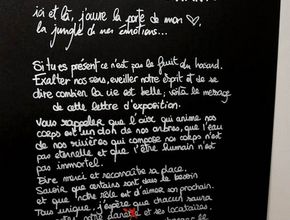 ici et là, j'ouvre la porte de mon ♡,
la jungle de mes émotions...
Si tu es présent ce n'est pas le fruit du hasard.
Exalter nos sens, éveiller notre esprit et de se
dire combien la vie est belle; voilà le message
de cette lettre d'exposition.
Vous rappeler que l'air qui anime nos
corps est un don de nos arbres, que l'eau
de nos rivières qui compose nos corps n'est
pas éternelle et que l'être humain n'est
pas immortel.
Dire merci et reconnaître sa place.
Savoir que certains sont dans le besoin
et que notre rôle est d'aimer son prochain.
Tous unique, j'espère que chacun saura
notre planète et ses locataires.